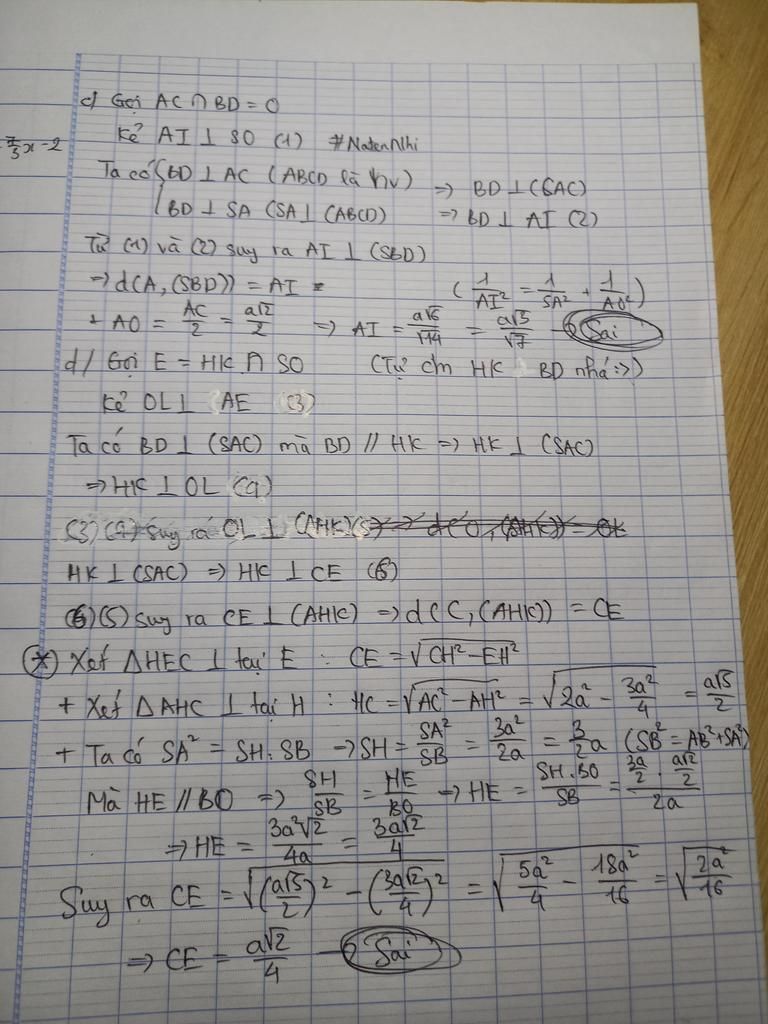 c/ Gọi AC ∩ BD = O
7/3 x - 2
Kẻ AI ⊥ SO (1) #NatenNhi
Ta có { BD ⊥ AC (ABCD là hv) ⇒ BD ⊥ (SAC)
BD ⊥ SA (SA ⊥ (ABCD) ⇒ BD ⊥ AI (2)
Từ (1) và (2) suy ra AI ⊥ (SBD)
⇒ d(A, (SBD)) = AI (1/AI² = 1/SA² + 1/AO²)
+ AO = AC/2 = a√2/2 ⇒ AI = a√6/√14 = a√3/√7 → Sai
d/ Gọi E = HK ∩ SO (Tự cm HK BD nhá :>)
Kẻ OL ⊥ AE (3)
Ta có BD ⊥ (SAC) mà BD // HK ⇒ HK ⊥ (SAC)
⇒ HK ⊥ OL (4)
(3)(4) suy ra OL ⊥ (AHK) (5) ⇒ d(O, (AHK)) = OK
HK ⊥ (SAC) ⇒ HK ⊥ CE (6)
(6)(5) suy ra CE ⊥ (AHK) ⇒ d(C, (AHK)) = CE
(*) Xét ΔHEC ⊥ tại E : CE = √(CH² - EH²)
+ Xét ΔAHC ⊥ tại H : HC = √(AC² - AH²) = √(2a² - 3a²/4) = a√5/2
+ Ta có SA² = SH.SB → SH = SA²/SB = 3a²/2a = 3/2 a (SB² = AB² + SA²)
Mà HE // BO ⇒ SH/SB = HE/BO → HE = SH.BO/SB = (3a/2 . a√2/2)/2a
⇒ HE = 3a²√2/4a = 3a√2/4
Suy ra CE = √((a√5/2)² - (3a√2/4)²) = √(5a²/4 - 18a²/16) = √(2a²/16)
⇒ CE = a√2/4 → Sai